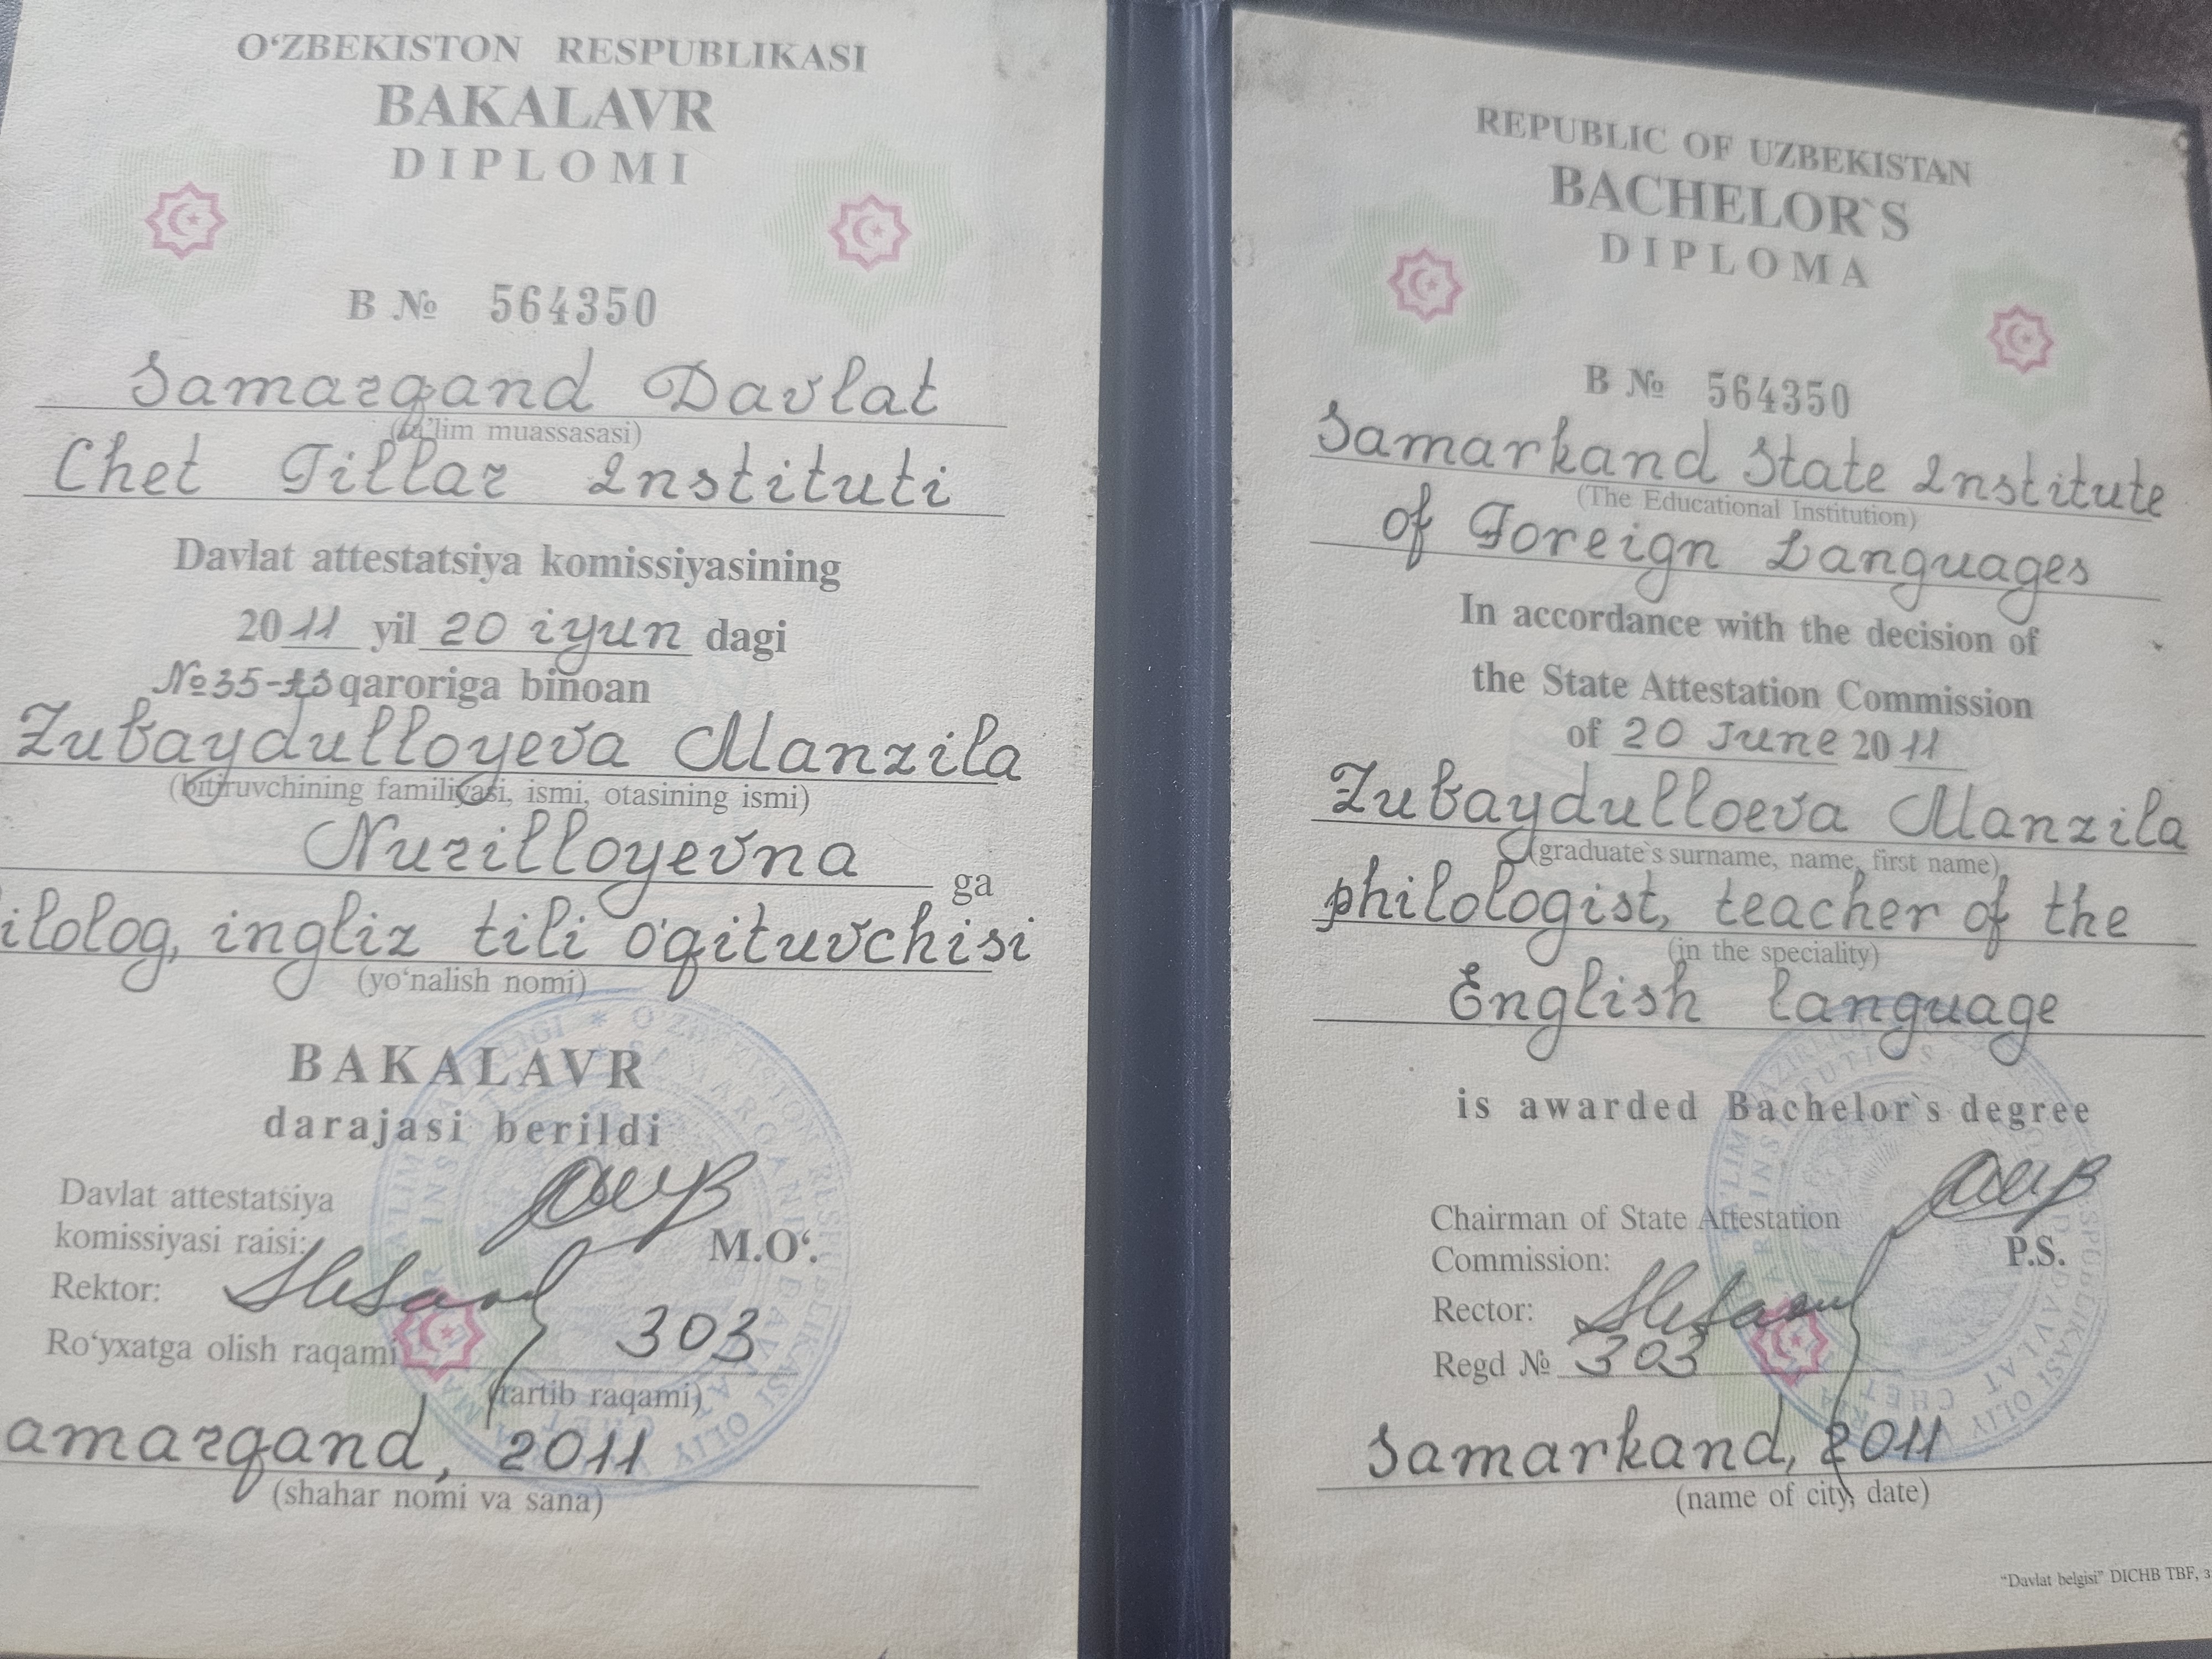 O‘ZBEKISTON RESPUBLIKASI
BAKALAVR
DIPLOMI
B № 564350
Samarqand Davlat
(ta’lim muassasasi)
Chet Tillar Instituti
Davlat attestatsiya komissiyasining
2011 yil 20 iyun dagi
№35- qaroriga binoan
Zubaydulloyeva Manzila
(bitiruvchining familiyasi, ismi, otasining ismi)
Nurilloyevna ga
ilolog, ingliz tili o'qituvchisi
(yo‘nalish nomi)
BAKALAVR
darajasi berildi
Davlat attestatsiya
komissiyasi raisi:
M.O‘.
Rektor:
Ro‘yxatga olish raqami 303
(tartib raqami)
amarqand, 2011
(shahar nomi va sana)
REPUBLIC OF UZBEKISTAN
BACHELOR`S
DIPLOMA
B № 564350
Samarkand State Institute
(The Educational Institution)
of Foreign Languages
In accordance with the decision of
the State Attestation Commission
of 20 June 2011
Zubaydulloeva Manzila
(graduate`s surname, name, first name)
philologist, teacher of the
(in the speciality)
English language
is awarded Bachelor`s degree
Chairman of State Attestation
Commission:
P.S.
Rector:
Regd № 303
Samarkand, 2011
(name of city, date)
“Davlat belgisi” DICHB TBF, 3